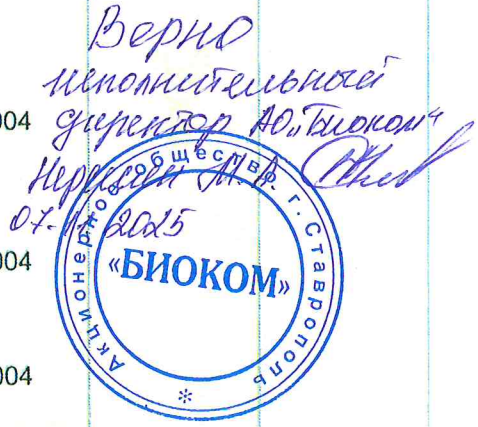 Верно
исполнительный
директор АО „Биоком“
М.А.
07.11.2025
004
004
004
Акционерное общество г. Ставрополь
«БИОКОМ»
*